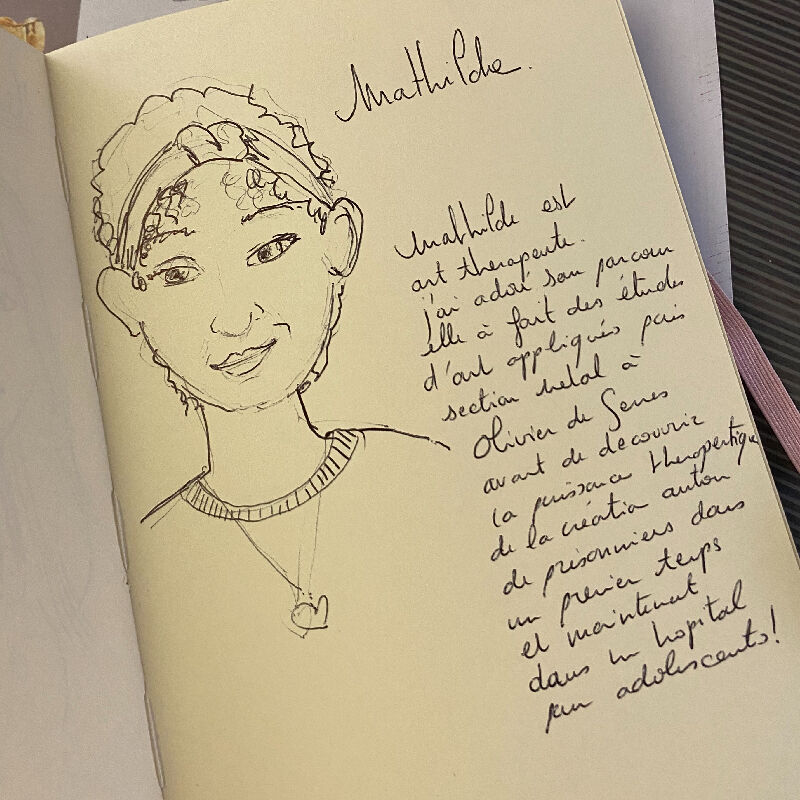 Mathilde.
Mathilde est
art thérapeute.
j'ai adoré son parcours
elle à fait des études
d'art appliqués puis
section metal à
Olivier de Serres
avant de decouvrir
la puissance therapeutique
de la création autour
de prisonniers dans
un premier temps
et maintenant
dans un hopital
pour adolescents!